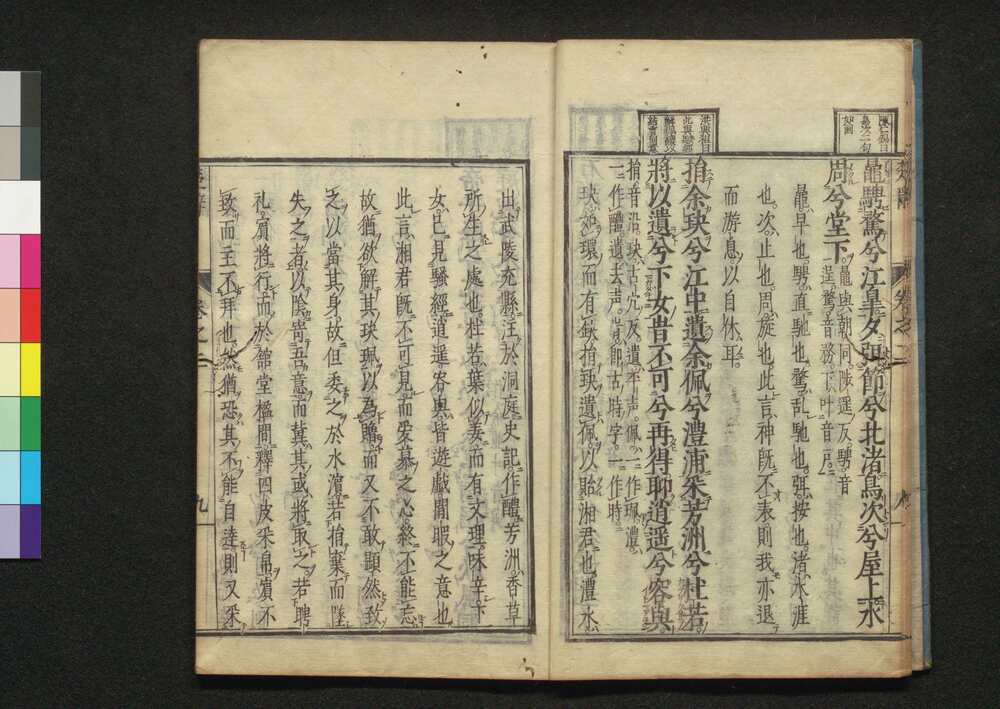 鼂騁騖兮江皋夕弭節兮北渚鳥次兮屋上水
周兮堂下。鼂與朝同陟遥反騁音
逞。騖音務。下叶音戶。
鼂早也。騁直馳也。騖乱馳也。弭按也。渚水涯
也。次止也。周旋也。此言神既不來則我亦退
而游息以自休耳。
捐余玦兮江中遺余佩兮澧浦采芳洲兮杜若
將以遺兮下女旹不可兮再得聊逍遥兮容與
捐音沿。玦古穴反遺平声。佩一作珮澧
一作醴遺去声。旹即古時字。一作時。
玦如環而有缺捐玦遺佩以貽湘君也澧水
出武陵充縣注於洞庭史記作醴芳洲香草
所生之處也。杜若葉似姜而有文理味辛下
女已見騷經逍遥容與皆遊戲閒暇之意也
此言湘君既不可見而愛慕之心終不能忘
故猶欲解其玦珮以為贈而又不敢顯然致
之以當其身。故但委之於水濱若捐棄而墜
失之者以陰寄吾意而冀其或將取之。若聘
礼賓將行而於舘堂楹間。釋四皮采皐賓不
致而主不拜也。然猶恐其不能自達則又采
卷之二
九